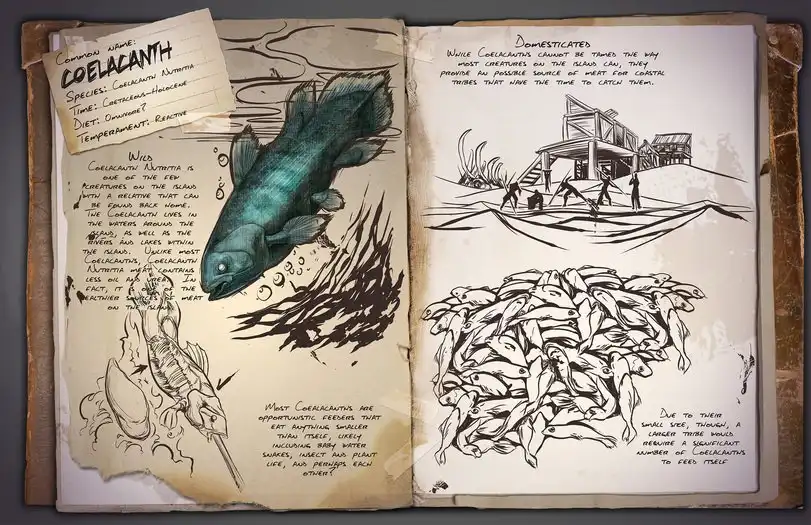 Common name:
COELACANTH
Species: Coelacanth Nutritia
Time: Cretaceous-Holocene
Diet: Omnivore?
Temperament: Reactive
Wild
Coelacanth Nutritia is
one of the few
creatures on the island
with a relative that can
be found back home.
The Coelacanth lives in
the waters around the
island, as well as the
rivers and lakes within
the island. Unlike most
Coelacanths, Coelacanth
Nutritia meat contains
less oil and urea. In
fact, it is one of the
healthier sources of meat
on the island.
Most Coelacanths are
opportunistic feeders that
eat anything smaller
than itself, likely
including baby water
snakes, insect and plant
life, and perhaps each
other?
Domesticated
While Coelacanths cannot be tamed the way
most creatures on the island can, they
provide an possible source of meat for coastal
tribes that have the time to catch them.
Due to their
small size, though, a
larger tribe would
require a significant
number of Coelacanths
to feed itself